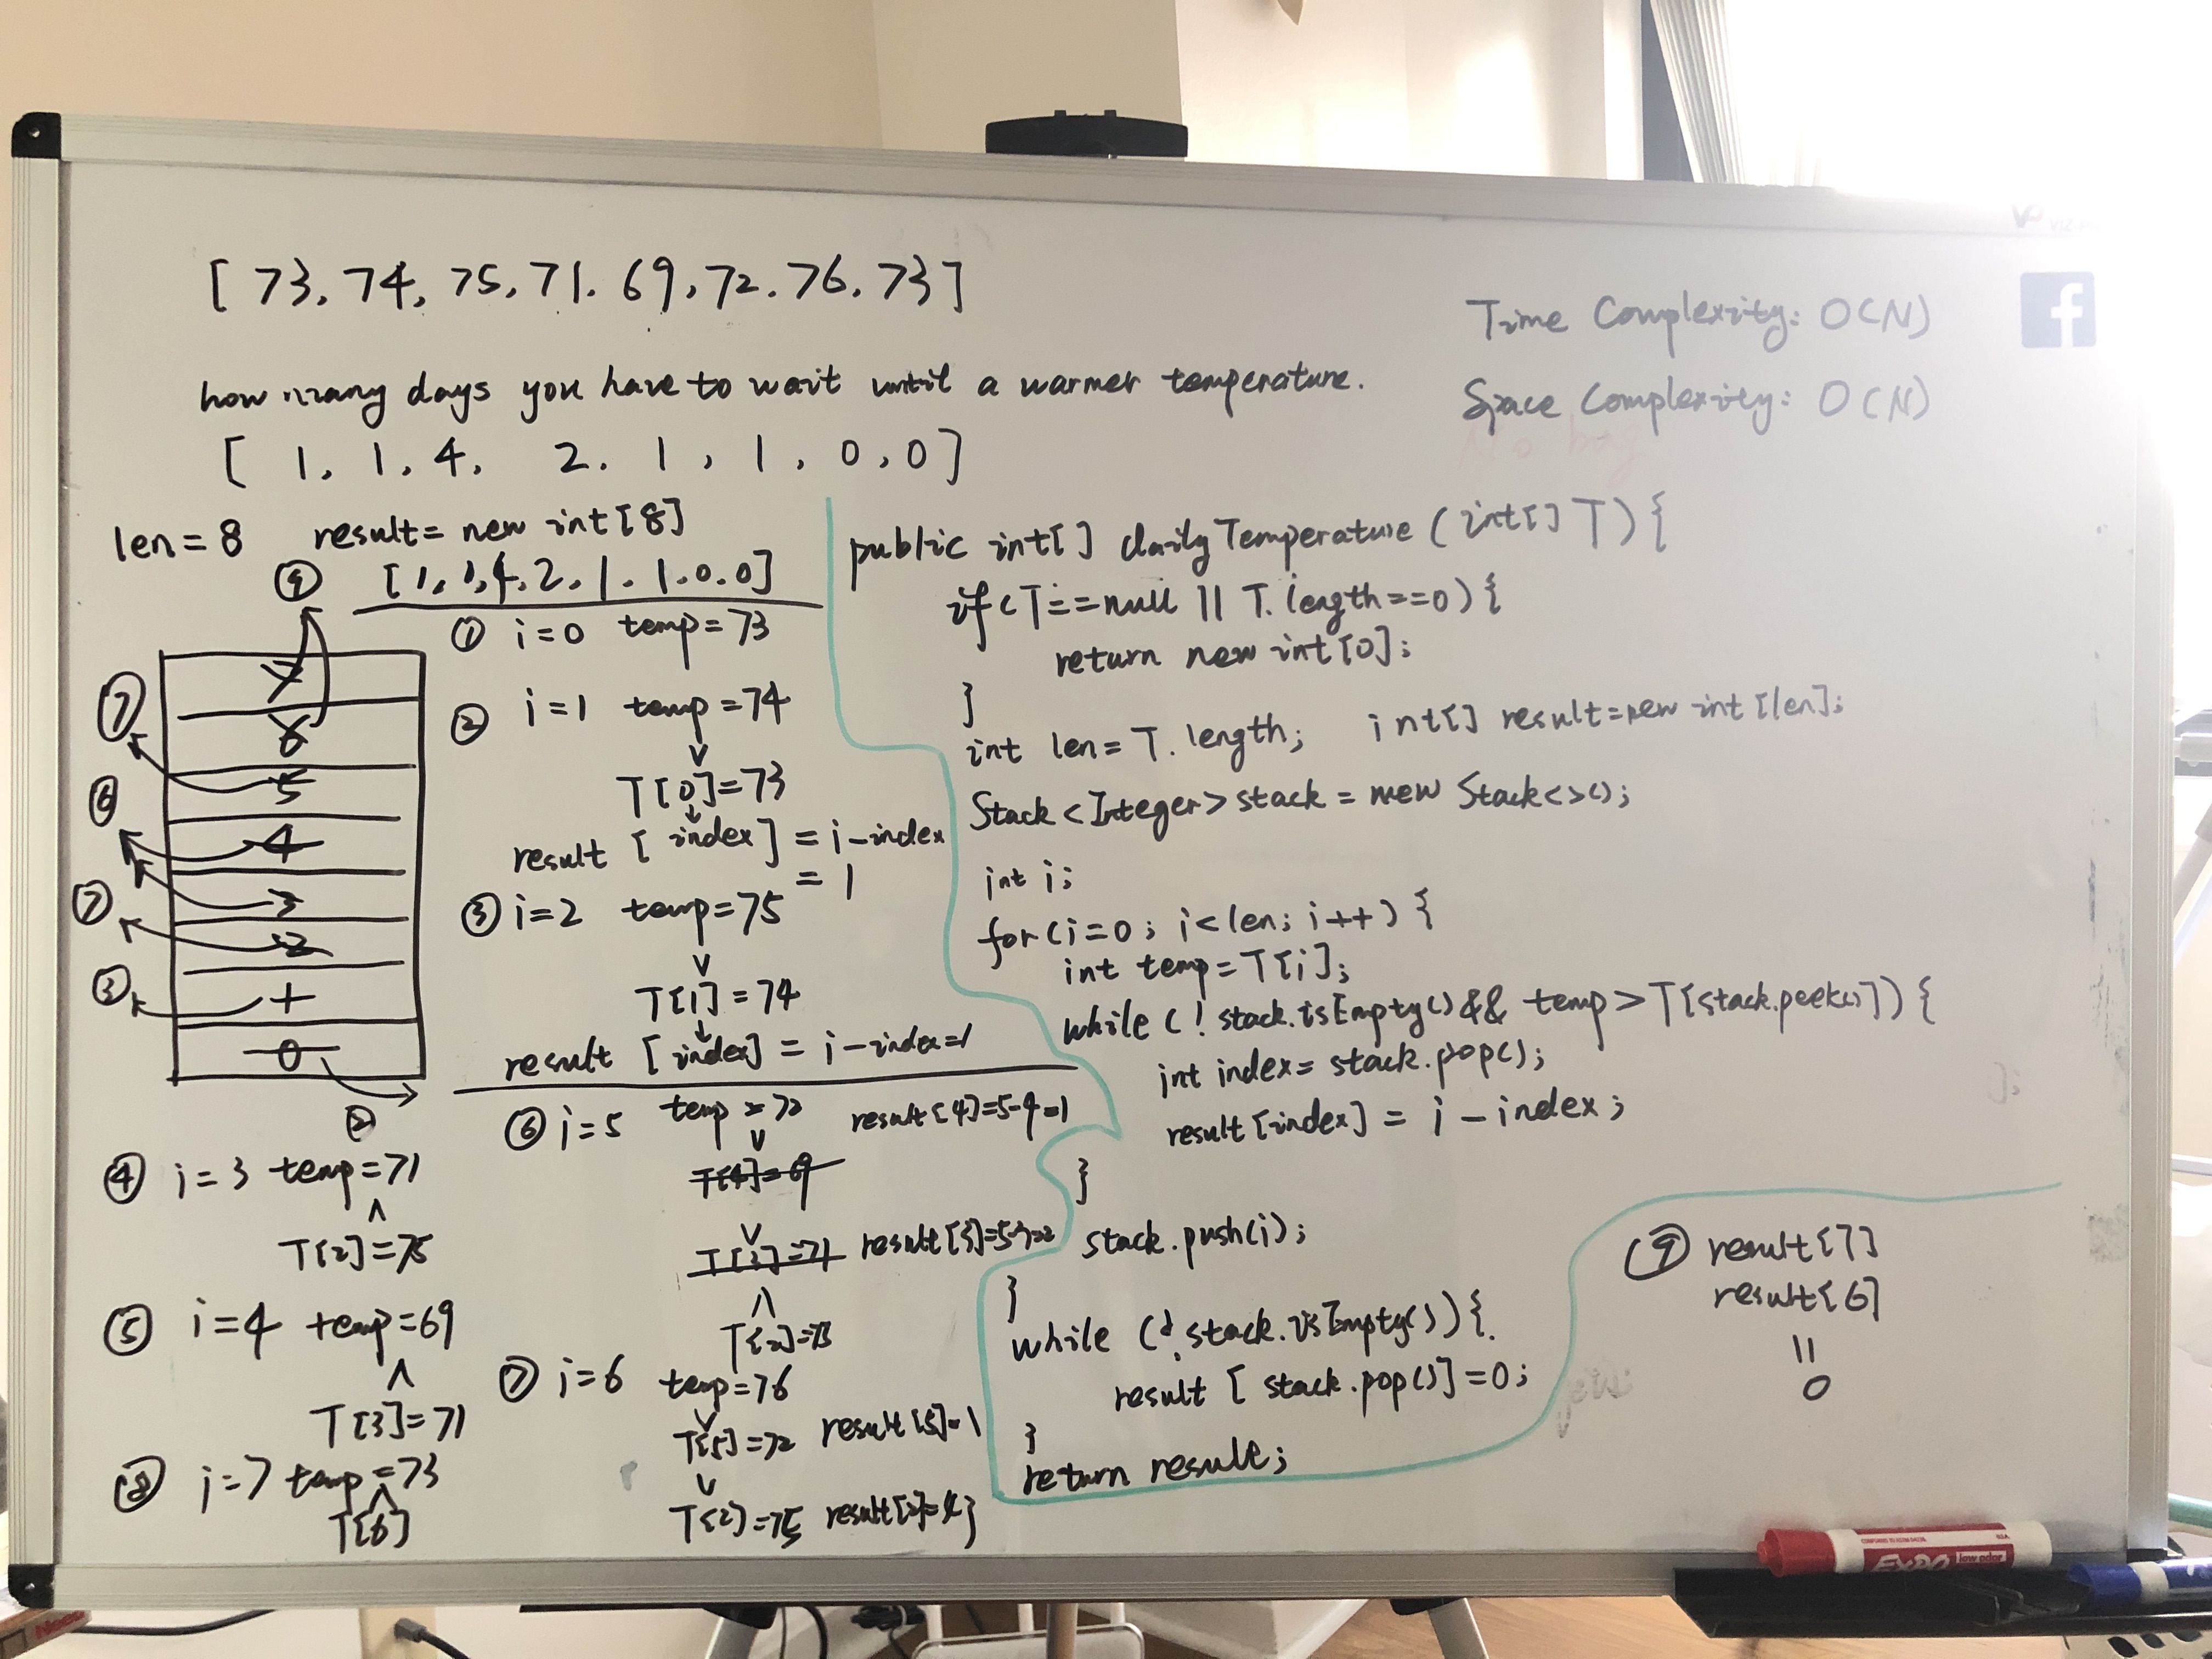 [ 73, 74, 75, 71. 69, 72. 76, 73 ]
how many days you have to wait until a warmer temperature.
[ 1, 1, 4, 2. 1, 1, 0, 0 ]
Time Complexity: O(N)
Space Complexity: O(N)
No bug
f
len = 8 result = new int [8]
[1, 1, 4, 2, 1. 1. 0. 0]
⑨
7
6
5
4
3
2
1
0
⑦
⑥
⑦
③
②
① i=0 temp=73
② i=1 temp=74
∨
T[0]=73
↓
result [ index ] = i-index
= 1
③ i=2 temp=75
∨
T[1]=74
↓
result [index] = i-index=1
④ i=3 temp=71
∧
T[2]=75
⑤ i=4 temp=69
∧
T[3]=71
⑥ i=5 temp=72 result[4]=5-4=1
∨
T[4]=69
∨
T[3]=71 result[3]=5-3=2
∧
T[2]=75
⑦ i=6 temp=76
∨
T[5]=72 result[5]=1
∨
T[2]=75 result[2]=4
⑧ i=7 temp=73
∧
T[6]
public int[] dailyTemperature (int[] T) {
if (T==null || T.length==0) {
return new int[0];
}
int len = T.length; int[] result=new int [len];
Stack<Integer> stack = new Stack<>();
int i;
for (i=0; i<len; i++) {
int temp=T[i];
while (! stack.isEmpty() && temp > T[stack.peek()]) {
int index = stack.pop();
result [index] = i - index;
}
stack.push(i);
}
while (! stack.isEmpty()) {
result [ stack.pop()]=0;
}
return result;
}
⑨ result[7]
result[6]
||
0
EXPO low odor